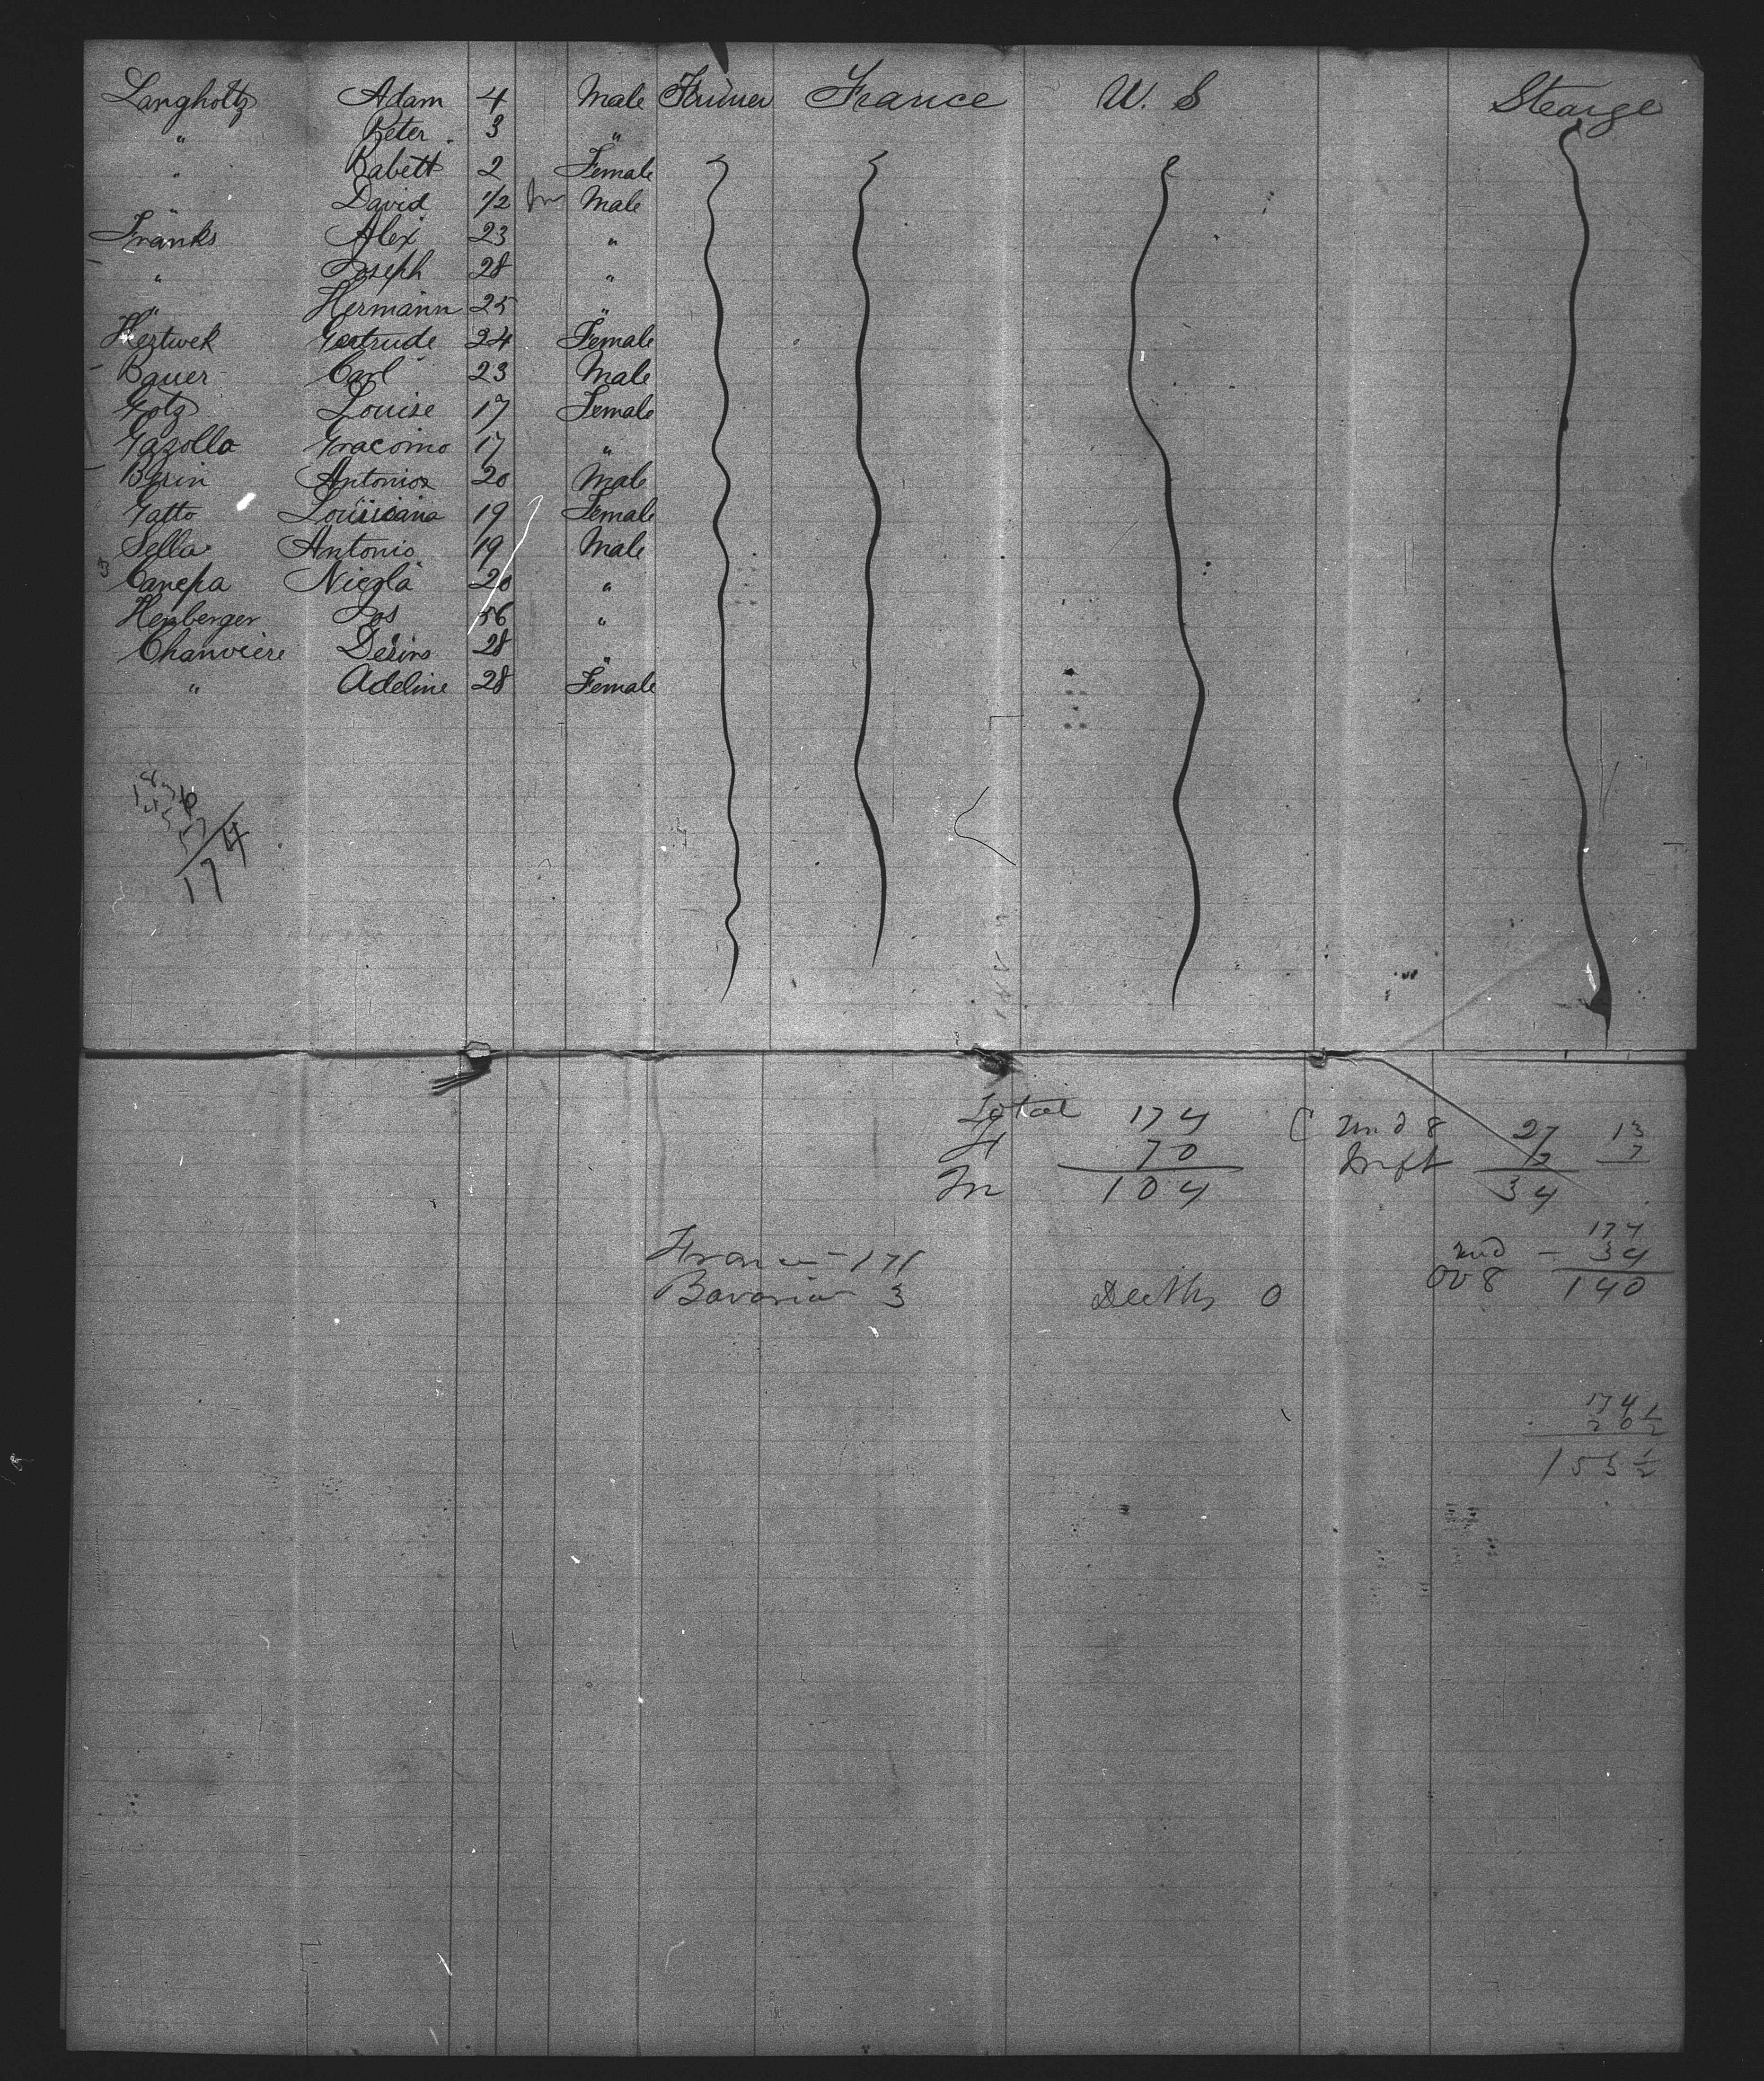 Langholtz Adam 4 Male France U. S Stearge
" Peter 3 "
" Babett 2 Female
" David 1/2 Male
Franks Alex 23 "
" Joseph 28 "
" Hermann 25 "
Hertwek Gertrude 24 Female
Bauer Carl 23 Male
Gotz Louise 17 Female
Gazolla Giacomo 17 "
Antonio 20 Male
Gatto Louisiana 19 Female
Sella Antonio 19 Male
Canepa Nicola 20 "
Henberger Jos 56 "
Chanviere 28 "
" Adeline 28 Female
174
Total 174 C und 8 27 13
F 70 Inft 7 7
M 104 34
174
France - 171 und - 34
Bavaria 3 Deths 0 ov 8 140
174
20 1/2
153 1/2